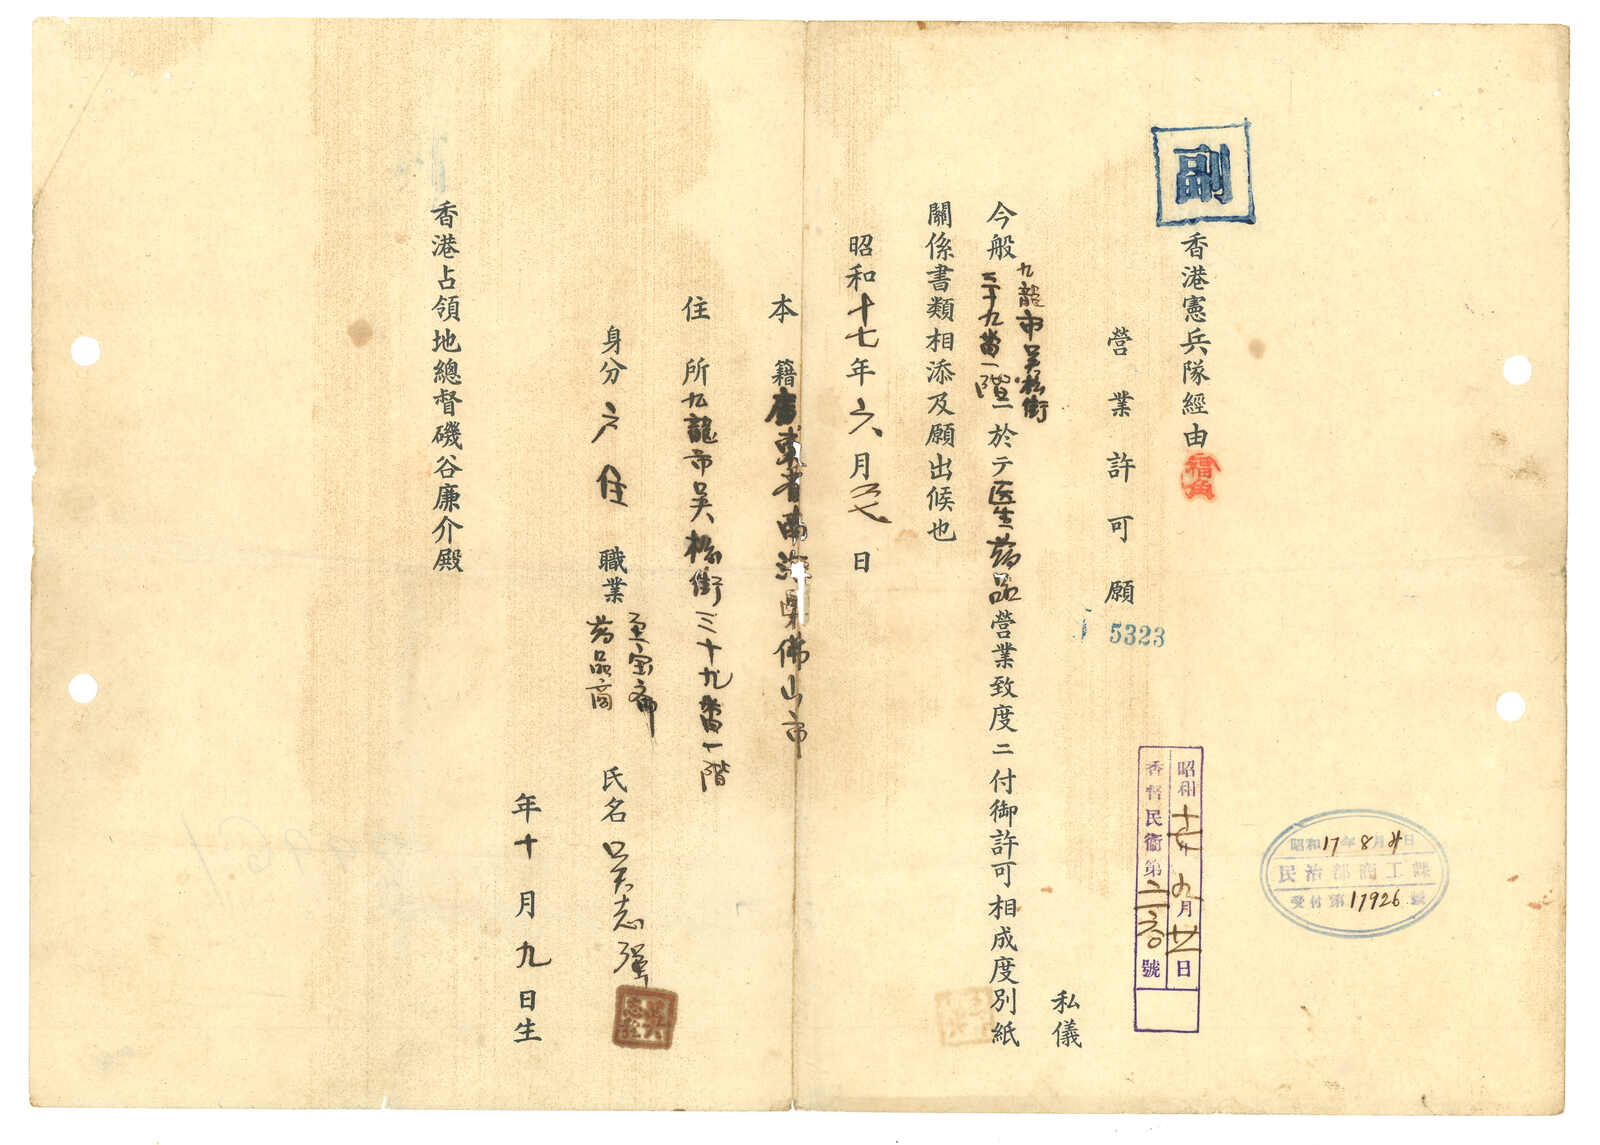 副
香港憲兵隊經由
福角
營業許可願
5323
私儀
今般九龍市吳松街三十九番一階ニ於テ医生薬品營業致度ニ付御許可相成度別紙
關係書類相添及願出候也
昭和十七年六月 日
本籍廣東省南海県佛山市
住所九龍市吳松街三十九番一階
身分戸住 職業 薬品商 氏名吳志強
年十月九日生
香港占領地總督磯谷廉介殿
昭和十七年九月廿一日
香督民衞第二六〇號
昭和17年8月 日
民治部商工課
受付第17926號